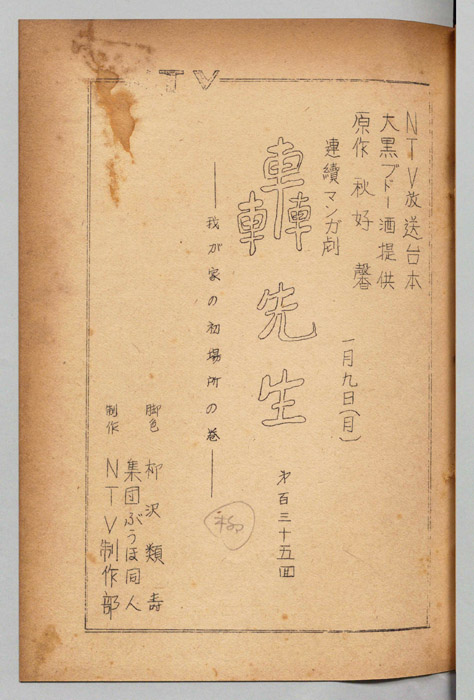 NTV
NTV放送台本
大黒ブドー酒提供
原作 秋好馨
連續マンガ劇
轟先生
一月九日(月)
第百三十五回
―我が家の初場所の巻―
柳
脚色 柳沢類寿
集団ぶうほ同人
制作 NTV制作部